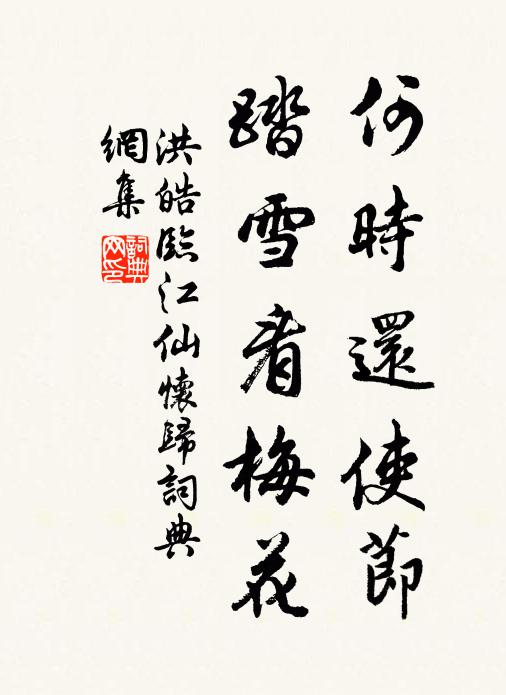 何時還使節
踏雪看梅花
洪皓臨江仙懷歸詞典
網集
詞典
网印